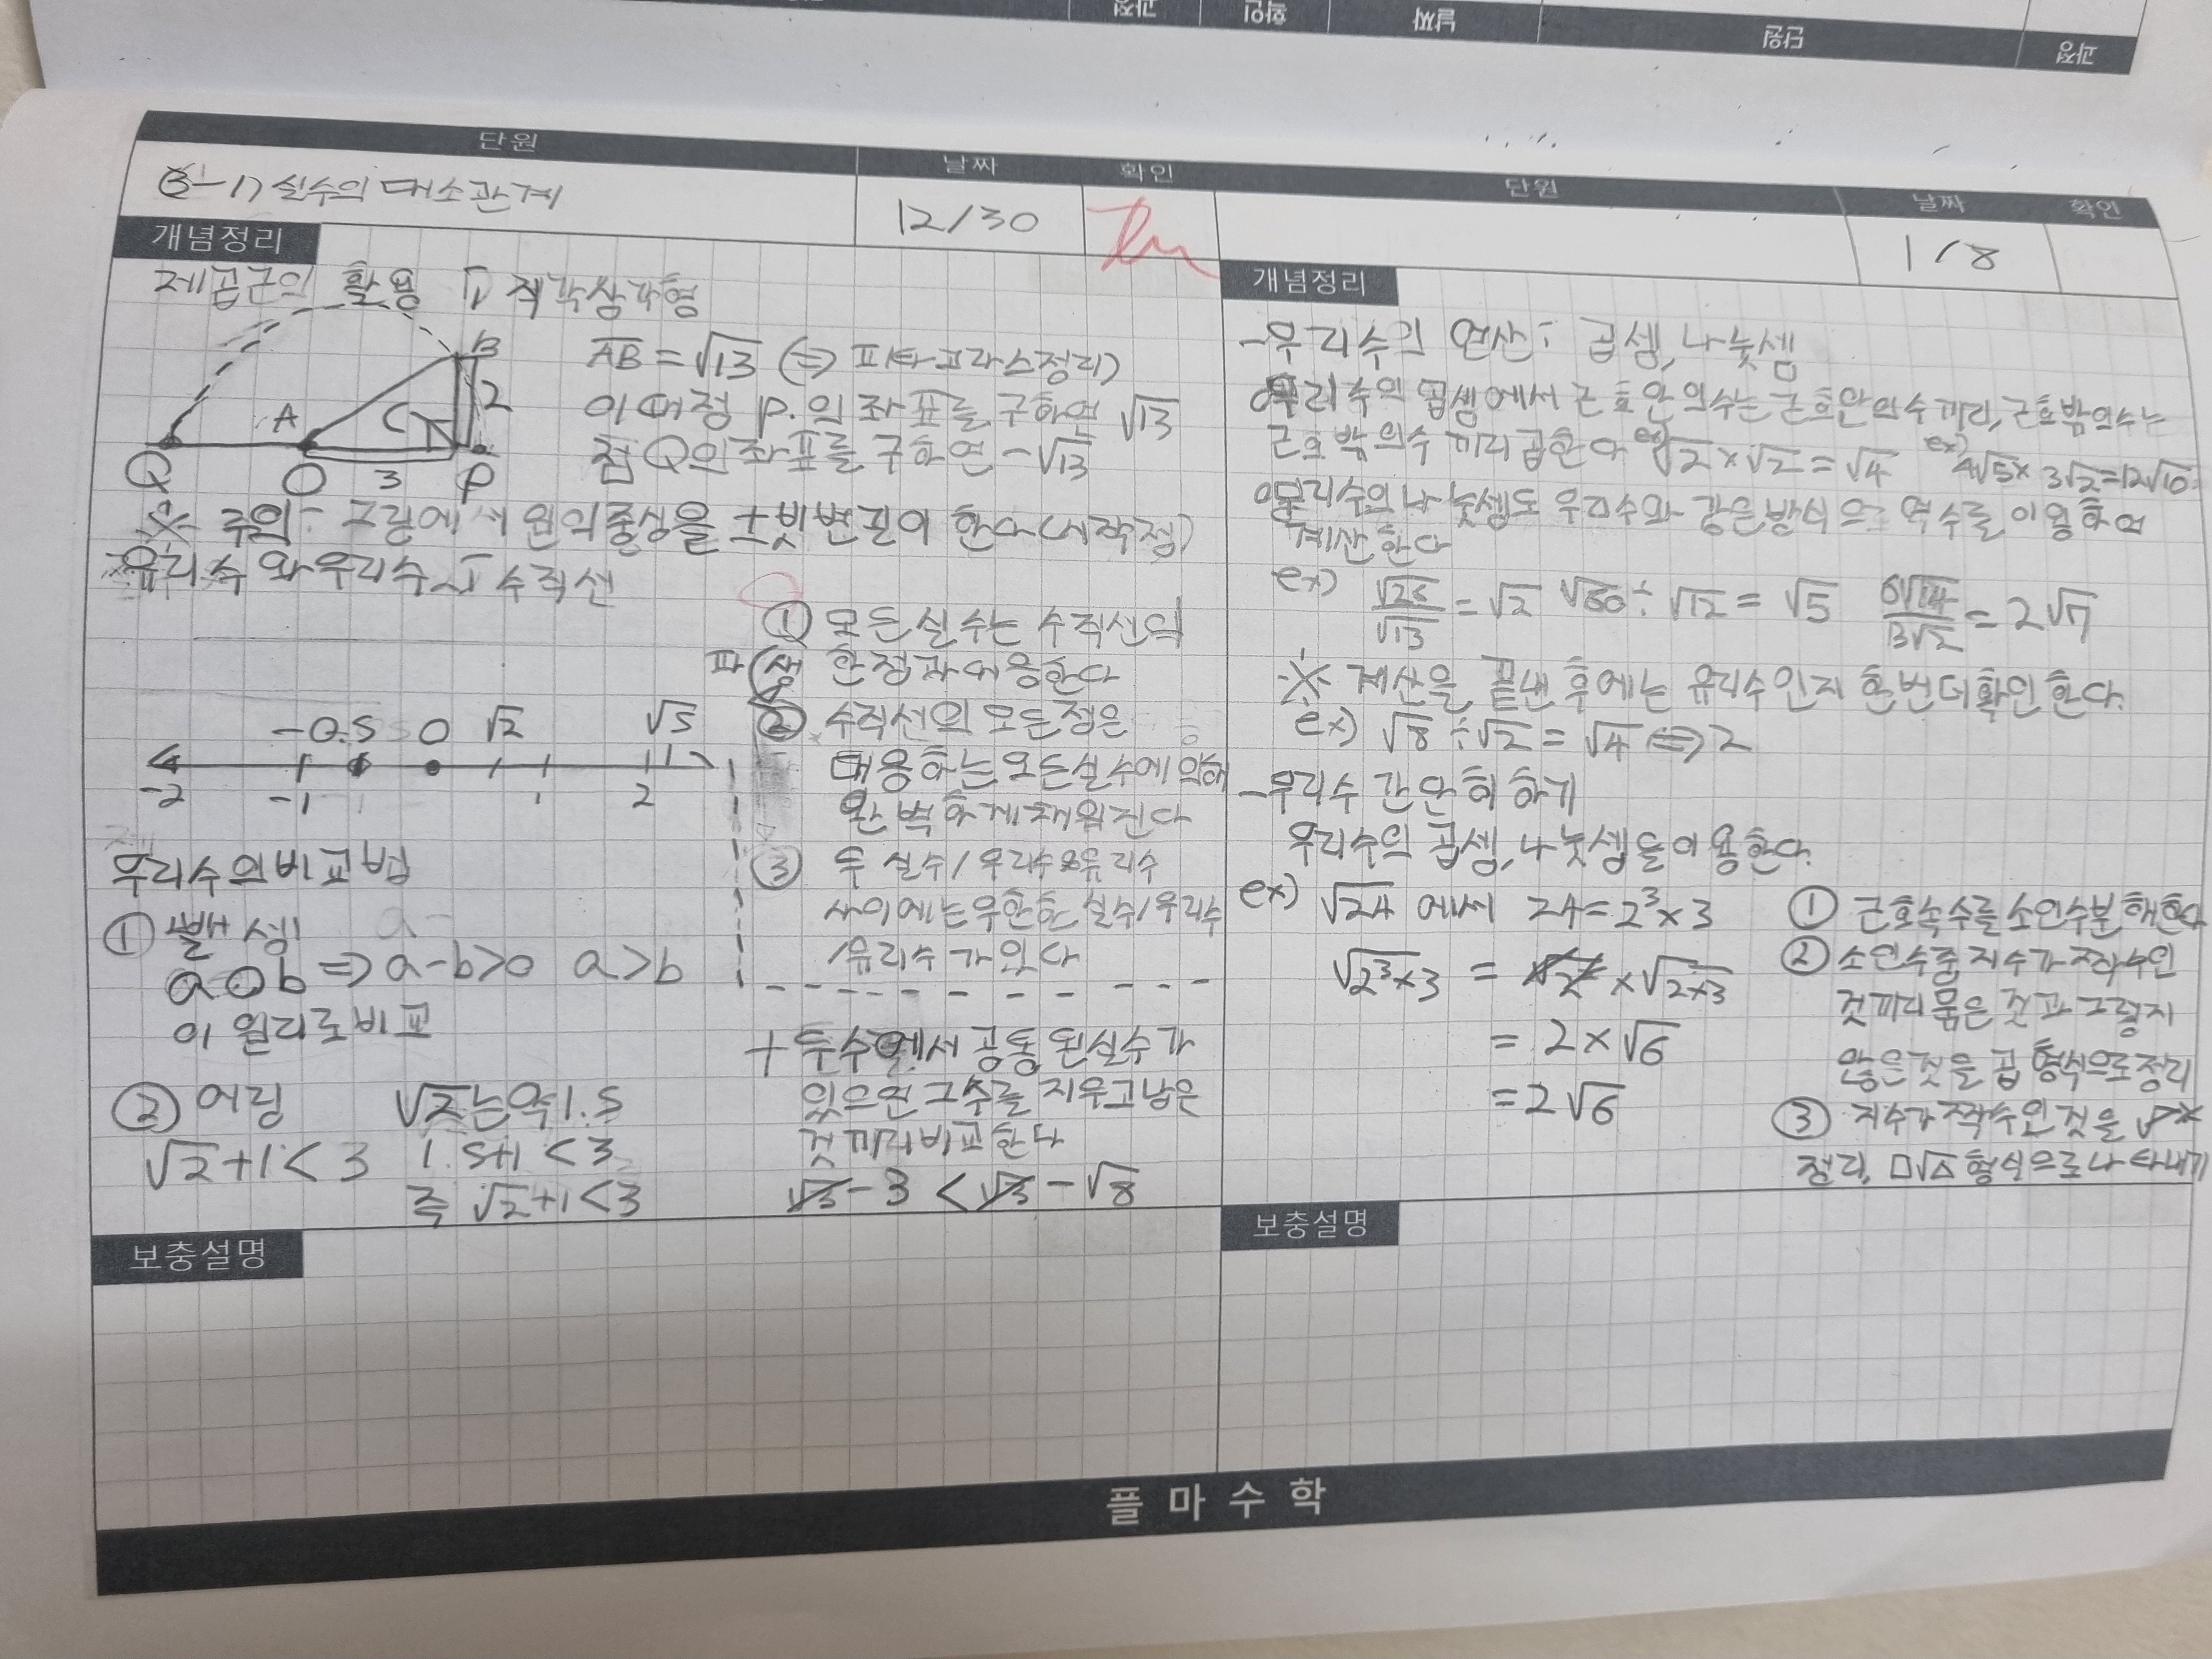 과정
단원
날짜
확인
과정
단원
날짜
확인
3-1) 실수의 대소관계
12/30
개념정리
제곱근의 활용 직각삼각형
AB = √13 (⇒ 피타고라스정리)
이때 점 P.의 좌표를 구하면 √13
점 Q의 좌표를 구하면 -√13
A
B
C
2
Q
O
3
P
※ 주의: 그림에서 원의 중심을 ±빗변길이 한다(시작점)
유리수와 무리수 수직선
① 모든 실수는 수직선의
한점과 대응한다
② 수직선의 모든 점은
대응하는 모든 실수에 의해
완벽하게 채워진다
③ 두 실수/무리수&유리수
사이에는 무한한 실수/무리수
/유리수가 있다
-0.5 0 √2 √5
-2 -1 1 2
무리수의 비교법
① 뺄셈
a○b ⇒ a-b>0 a>b
이 원리로 비교
② 어림 √2는 약 1.5
√2+1<3 1.5+1<3
즉 √2+1<3
+ 두수에서 공통 된 실수가
있으면 그 수를 지우고 남은
것끼리 비교한다
√3-3 < √3-√8
보충설명
단원
날짜
확인
1/8
개념정리
-무리수의 연산: 곱셈, 나눗셈
무리수의 곱셈에서 근호안의수는 근호안의수끼리, 근호밖의수는
근호밖의수끼리 곱한다 ex) √2×√2=√4 ex) 4√5×3√2=12√10
무리수의 나눗셈도 유리수와 같은방식으로 역수를 이용하여
계산한다
ex) √26/√13 = √2 √60÷√12 = √5 6√14/3√2 = 2√7
※ 계산을 끝낸 후에는 유리수인지 한번더 확인한다.
ex) √8÷√2=√4⇔2
-무리수 간단히 하기
무리수의 곱셈, 나눗셈을 이용한다.
ex) √24 에서 24=2³×3
√2³×3 = √2² × √2×3
= 2×√6
=2√6
① 근호속수를 소인수분해한다
② 소인수중 지수가 짝수인
것끼리 묶은 것과 그렇지
않은것을 곱 형식으로 정리
③ 지수가 짝수인 것을
정리, □√△ 형식으로 나타내기
보충설명
플마수학